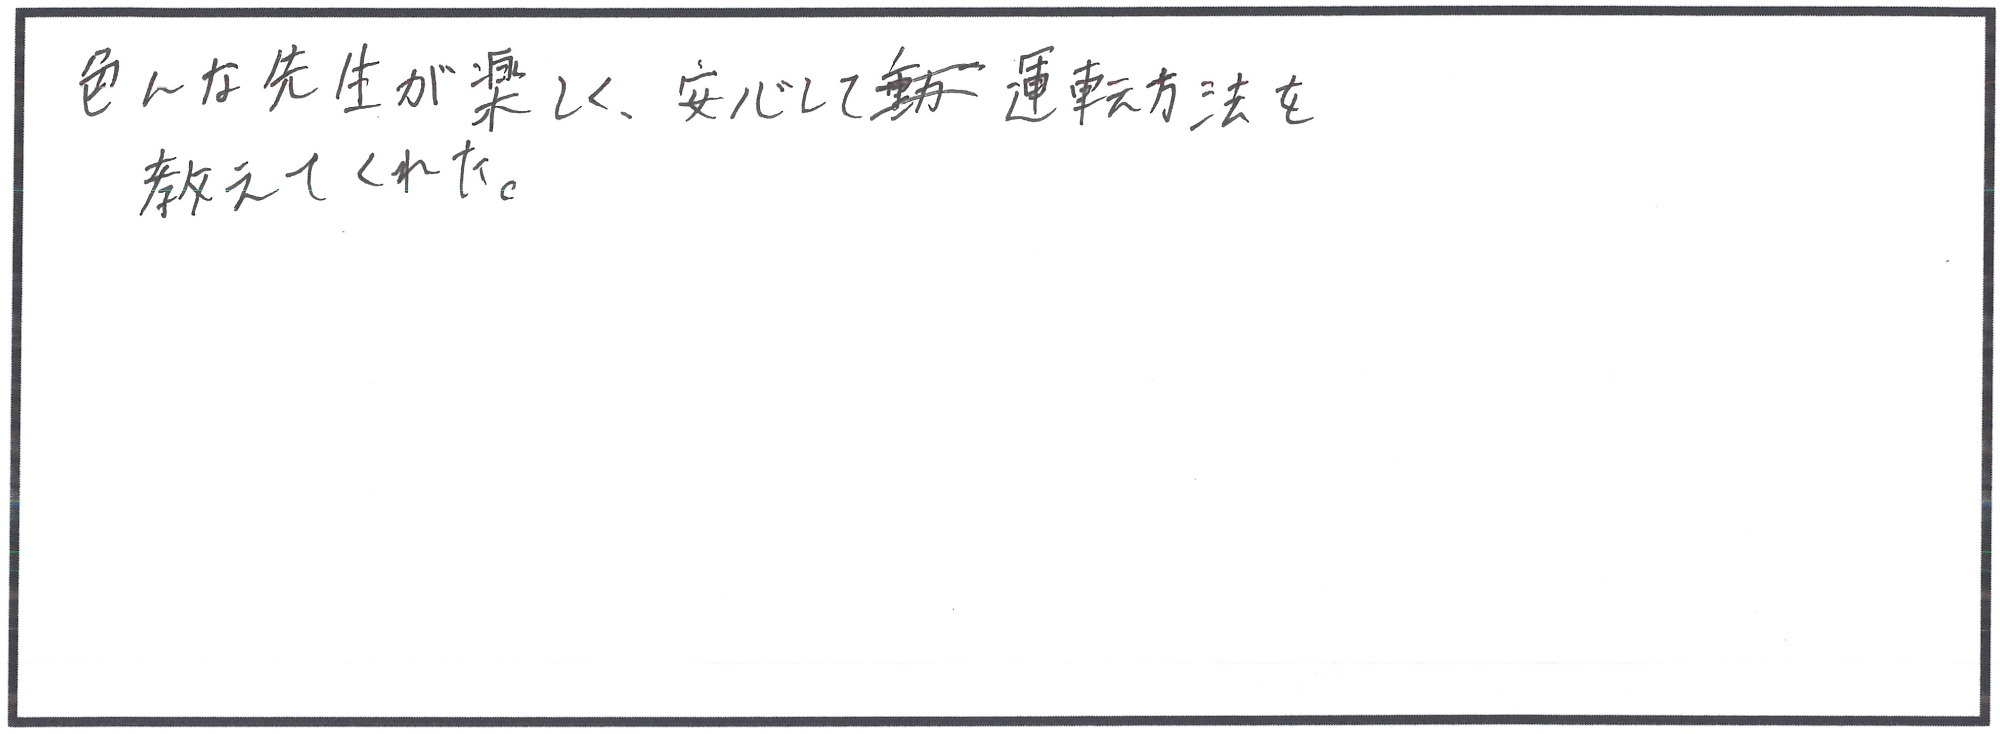 色んな先生が楽しく、安心して運転方法を
教えてくれた。